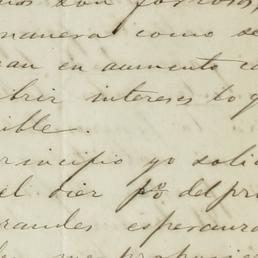 son forzosos
manera como se
en aumento
brir intereses lo q
ible.
rincipio yo soli
el diez p% del pr
randes esperan